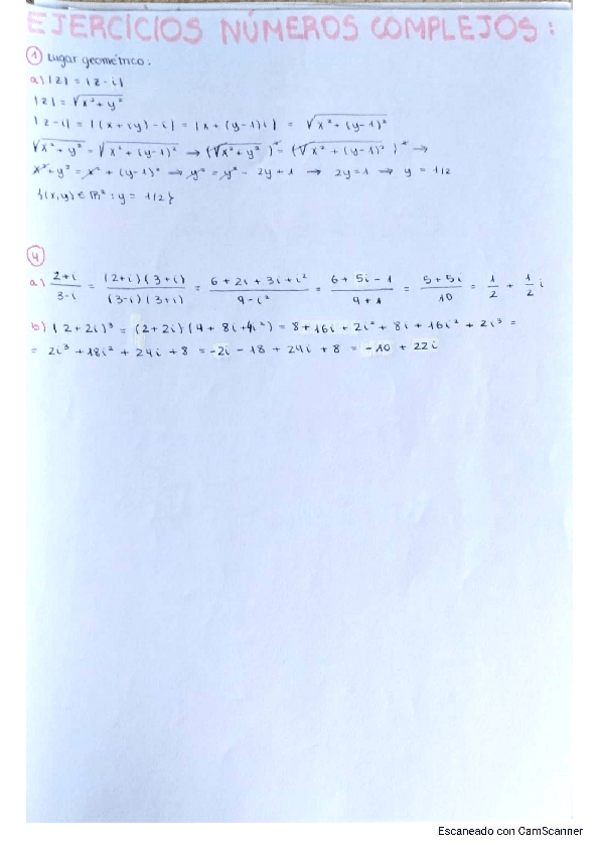 EJERCÍCIOS NÚMEROS COMPLEJOS :
① Lugar geométrico:
a) |z| = |z - i|
|z| = √x² + y²
|z-i| = |(x + iy) - i| = |x + (y-1)i| = √x² + (y-1)²
√x² + y² = √x² + (y-1)² → (√x² + y²)² = (√x² + (y-1)²)² →
x² + y² = x² + (y-1)² → y² = y² - 2y + 1 → 2y = 1 → y = 1/2
{(x,y) ∈ ℝ² : y = 1/2}
④
a) 2+i / 3-i = (2+i)(3+i) / (3-i)(3+i) = 6 + 2i + 3i + i² / 9 - i² = 6 + 5i - 1 / 9 + 1 = 5 + 5i / 10 = 1/2 + 1/2 i
b) (2+2i)³ = (2+2i)(4 + 8i + 4i²) = 8 + 16i + 2i² + 8i + 16i² + 2i³ =
= 2i³ + 18i² + 24i + 8 = -2i - 18 + 24i + 8 = -10 + 22i
Escaneado con CamScanner